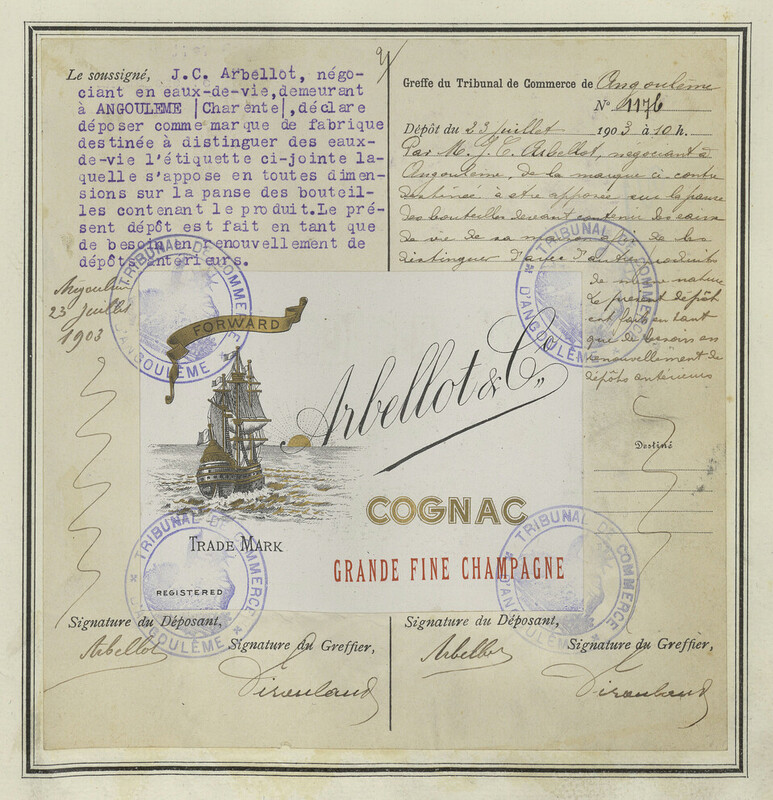 Le soussigné, J.C. Arbellot, négo-
ciant en eaux-de-vie, demeurant
à ANGOULEME |Charente|, déclare
déposer comme marque de fabrique
destinée à distinguer des eaux-
de-vie l'étiquette ci-jointe la-
quelle s'appose en toutes dimen-
sions sur la panse des bouteil-
les contenant le produit. Le pré-
sent dépôt est fait en tant que
de besoin en renouvellement de
dépôts antérieurs.
Angoulême
23 juillet
1903
Greffe du Tribunal de Commerce de Angoulême
N° 1176
Dépôt du 23 juillet 1903 à 10 h.
Par M. J. C. Arbellot, négociant à
Angoulême, de la marque ci contre
destinée à être apposée sur la panse
des bouteilles devant contenir des eaux
de vie de sa et de les
distinguer d'avec d'autres produits
de même nature
Le présent dépôt
est fait en tant
que de besoin en
renouvellement de
dépôts antérieurs
Destiné
TRIBUNAL DE COMMERCE
D'ANGOULÊME
TRIBUNAL DE COMMERCE
D'ANGOULÊME
FORWARD
Arbellot & Co
COGNAC
TRADE MARK
GRANDE FINE CHAMPAGNE
REGISTERED
TRIBUNAL DE COMMERCE
D'ANGOULÊME
TRIBUNAL DE COMMERCE
D'ANGOULÊME
Signature du Déposant,
Arbellot
Signature du Greffier,
Signature du Déposant,
Arbellot
Signature du Greffier,